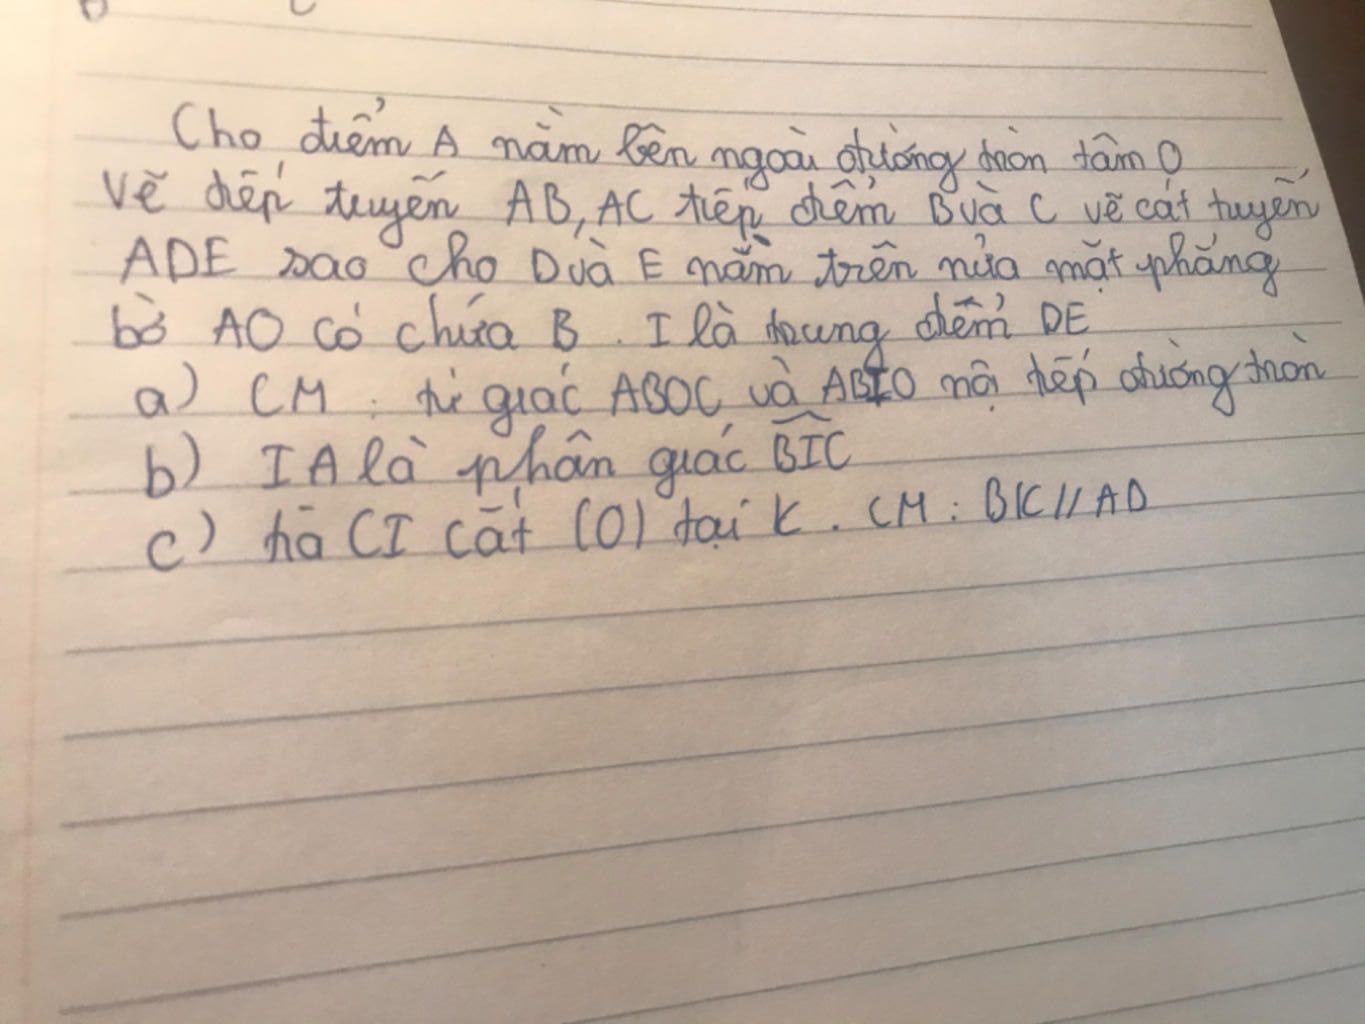 Cho điểm A nằm bên ngoài đường tròn tâm O
Vẽ tiếp tuyến AB, AC tiếp điểm B và C vẽ cát tuyến
ADE sao cho D và E nằm trên nửa mặt phẳng
bờ AO có chứa B. I là trung điểm DE
a) CM: tứ giác ABOC và ABIO nội tiếp đường tròn
b) IA là phân giác BIC
c) tia CI cắt (O) tại K. CM: BK // AD